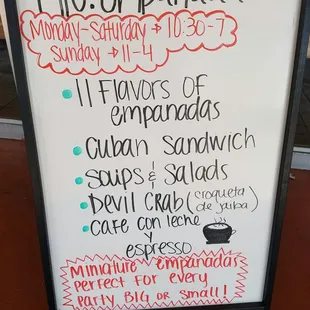 Monday-Saturday → 10:30-7
Sunday → 11-4
11 Flavors of
empanadas
Cuban Sandwich
Soups & Salads
Devil Crab (croqueta
de jaiba)
Cafe con leche
y
espresso
Miniature empanadas
perfect for every
party BIG or small!